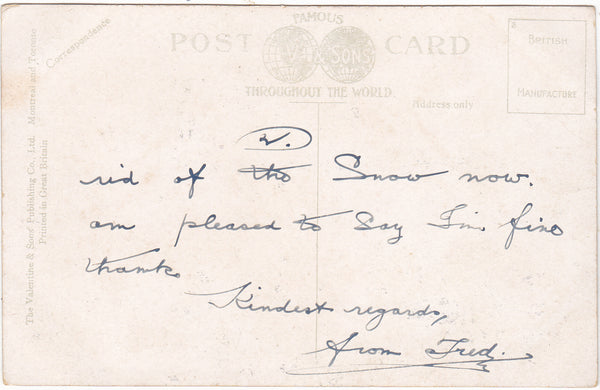 FAMOUS
POST CARD
V & SONS
THROUGHOUT THE WORLD.
Correspondence
Address only
BRITISH
MANUFACTURE
The Valentine & Sons' Publishing Co., Ltd. Montreal and Toronto
Printed in Great Britain
2.
rid of the Snow now.
am pleased to Say I'm fine
thanks
Kindest regards,
from Fred.